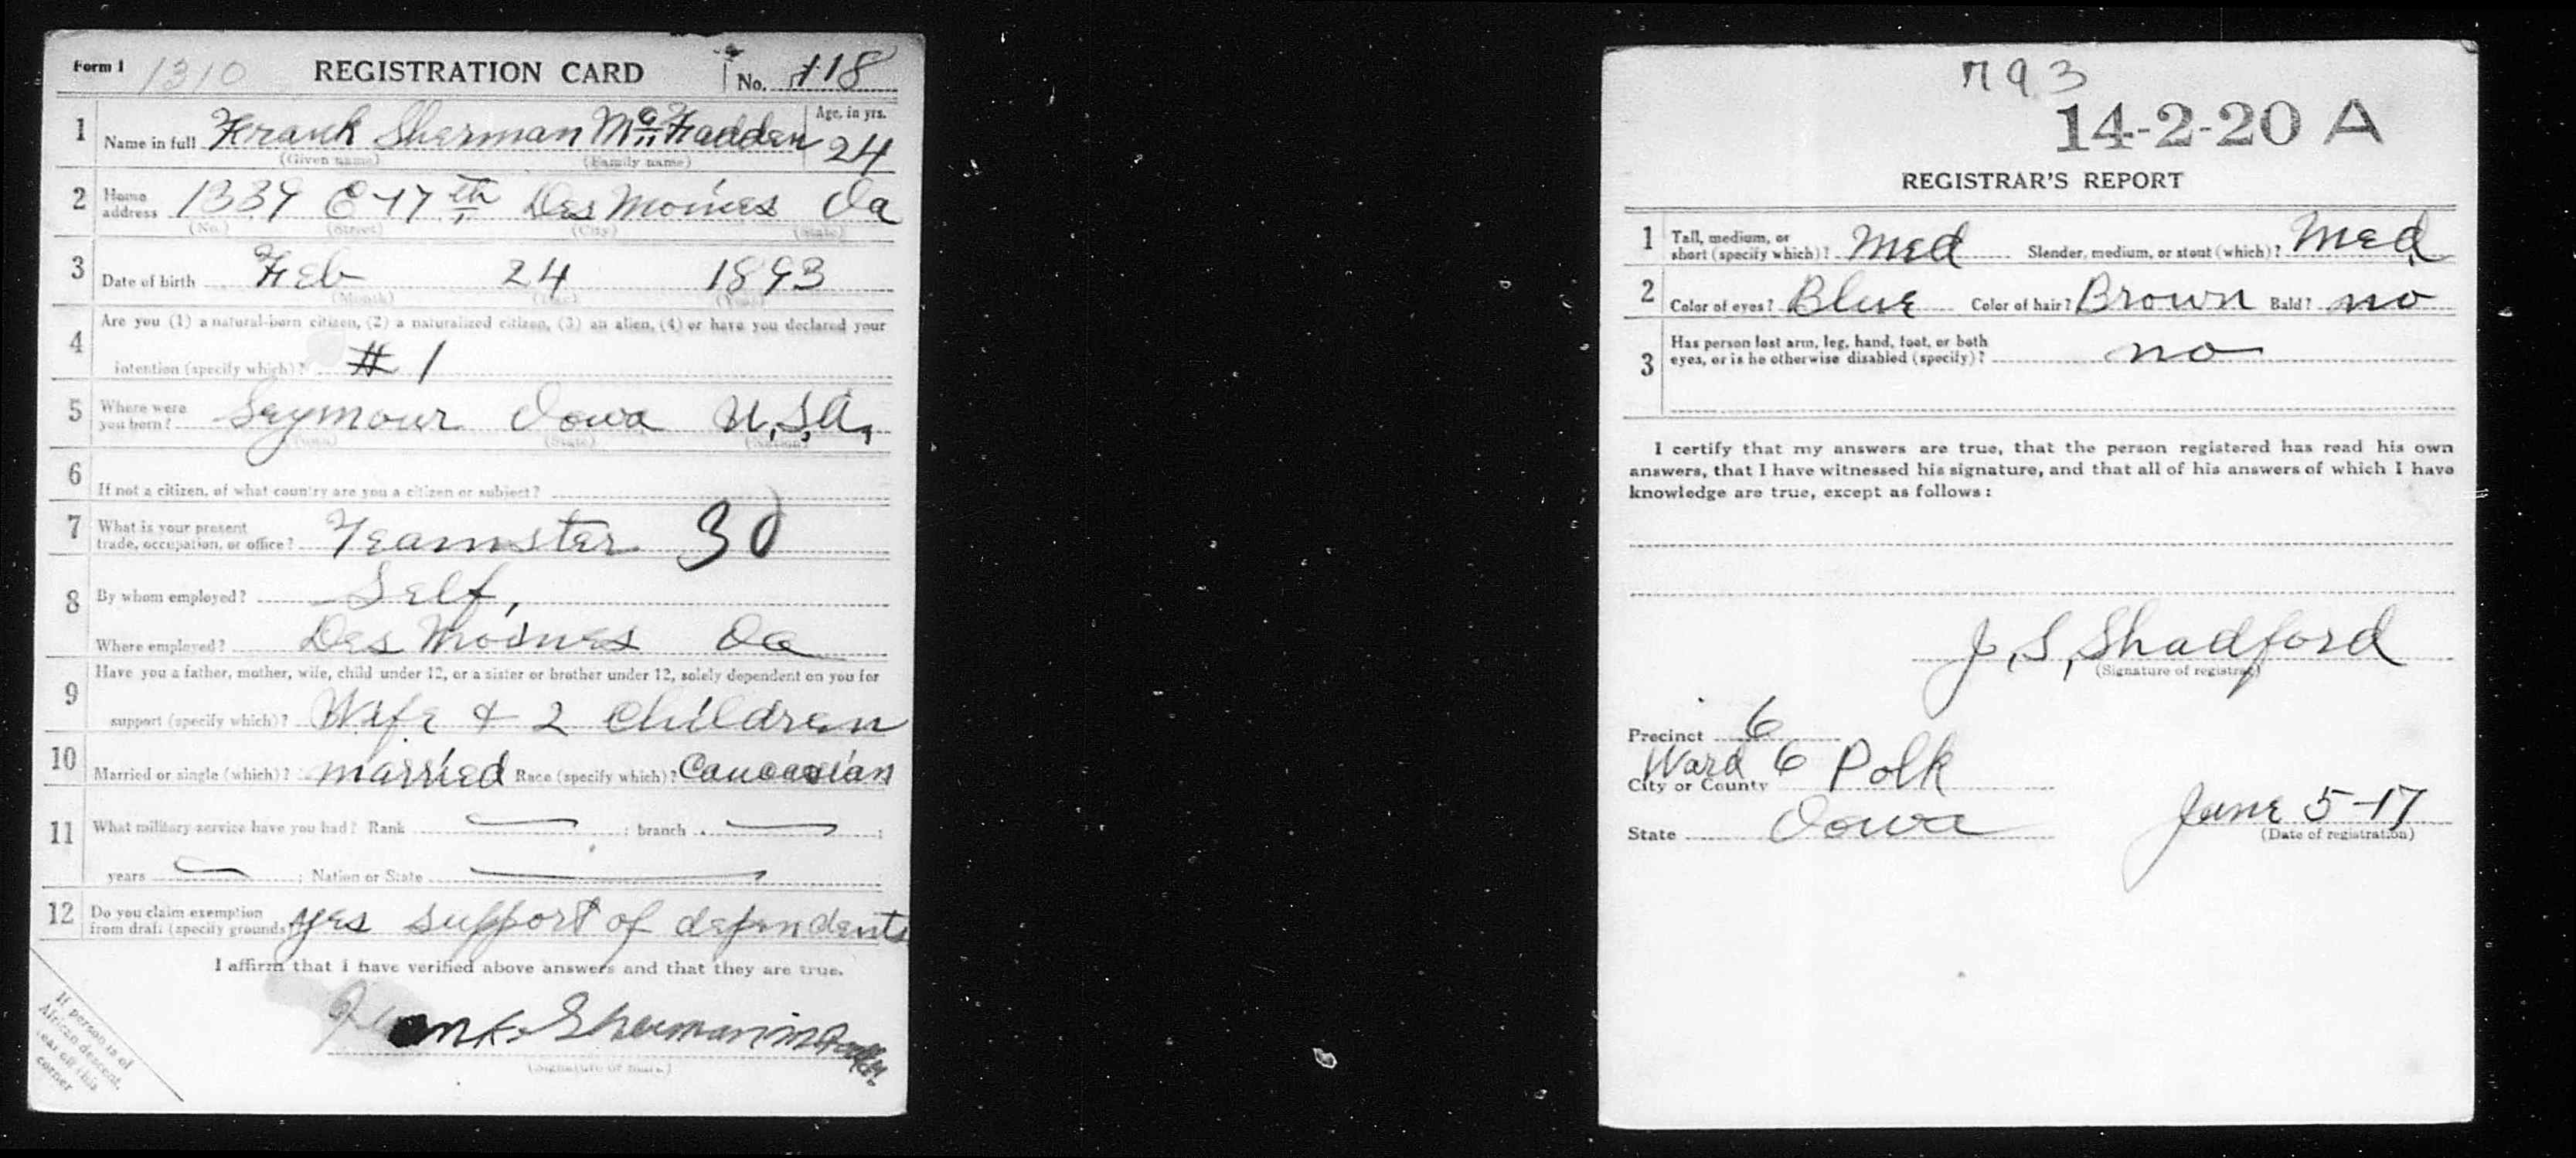 Form 1 1310 REGISTRATION CARD No. 118
1 Name in full Frank Sherman McFadden Age, in yrs. 24
(Given name) (Family name)
2 Home address 1339 E 17th Des Moines Ia
(No.) (Street) (City) (State)
3 Date of birth Feb 24 1893
(Month) (Day) (Year)
4 Are you (1) a natural-born citizen, (2) a naturalized citizen, (3) an alien, (4) or have you declared your
intention (specify which)? # 1
5 Where were you born? Seymour Iowa U.S.A.
(Town) (State) (Nation)
6 If not a citizen, of what country are you a citizen or subject?
7 What is your present trade, occupation, or office? Teamster 30
8 By whom employed? Self,
Where employed? Des Moines Ia
9 Have you a father, mother, wife, child under 12, or a sister or brother under 12, solely dependent on you for
support (specify which)? Wife & 2 Children
10 Married or single (which)? married Race (specify which)? Caucasian
11 What military service have you had? Rank — ; branch — ;
years — ; Nation or State —
12 Do you claim exemption from draft (specify grounds)? yes support of dependents
I affirm that I have verified above answers and that they are true.
Frank Sherman
(Signature or mark)
If person is of
African descent,
tear off this
corner
793
14-2-20 A
REGISTRAR'S REPORT
1 Tall, medium, or short (specify which)? Med Slender, medium, or stout (which)? Med.
2 Color of eyes? Blue Color of hair? Brown Bald? no
3 Has person lost arm, leg, hand, foot, or both eyes, or is he otherwise disabled (specify)? no
I certify that my answers are true, that the person registered has read his own
answers, that I have witnessed his signature, and that all of his answers of which I have
knowledge are true, except as follows:
J. S. Shadford
(Signature of registrar)
Precinct 6
Ward 6
City or County Polk
State Iowa June 5-17
(Date of registration)